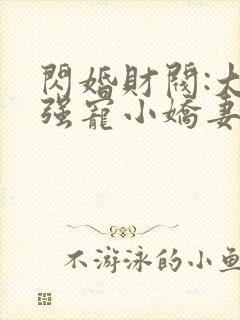 閃婚財閥:大
强寵小嬌妻
不游泳的小魚